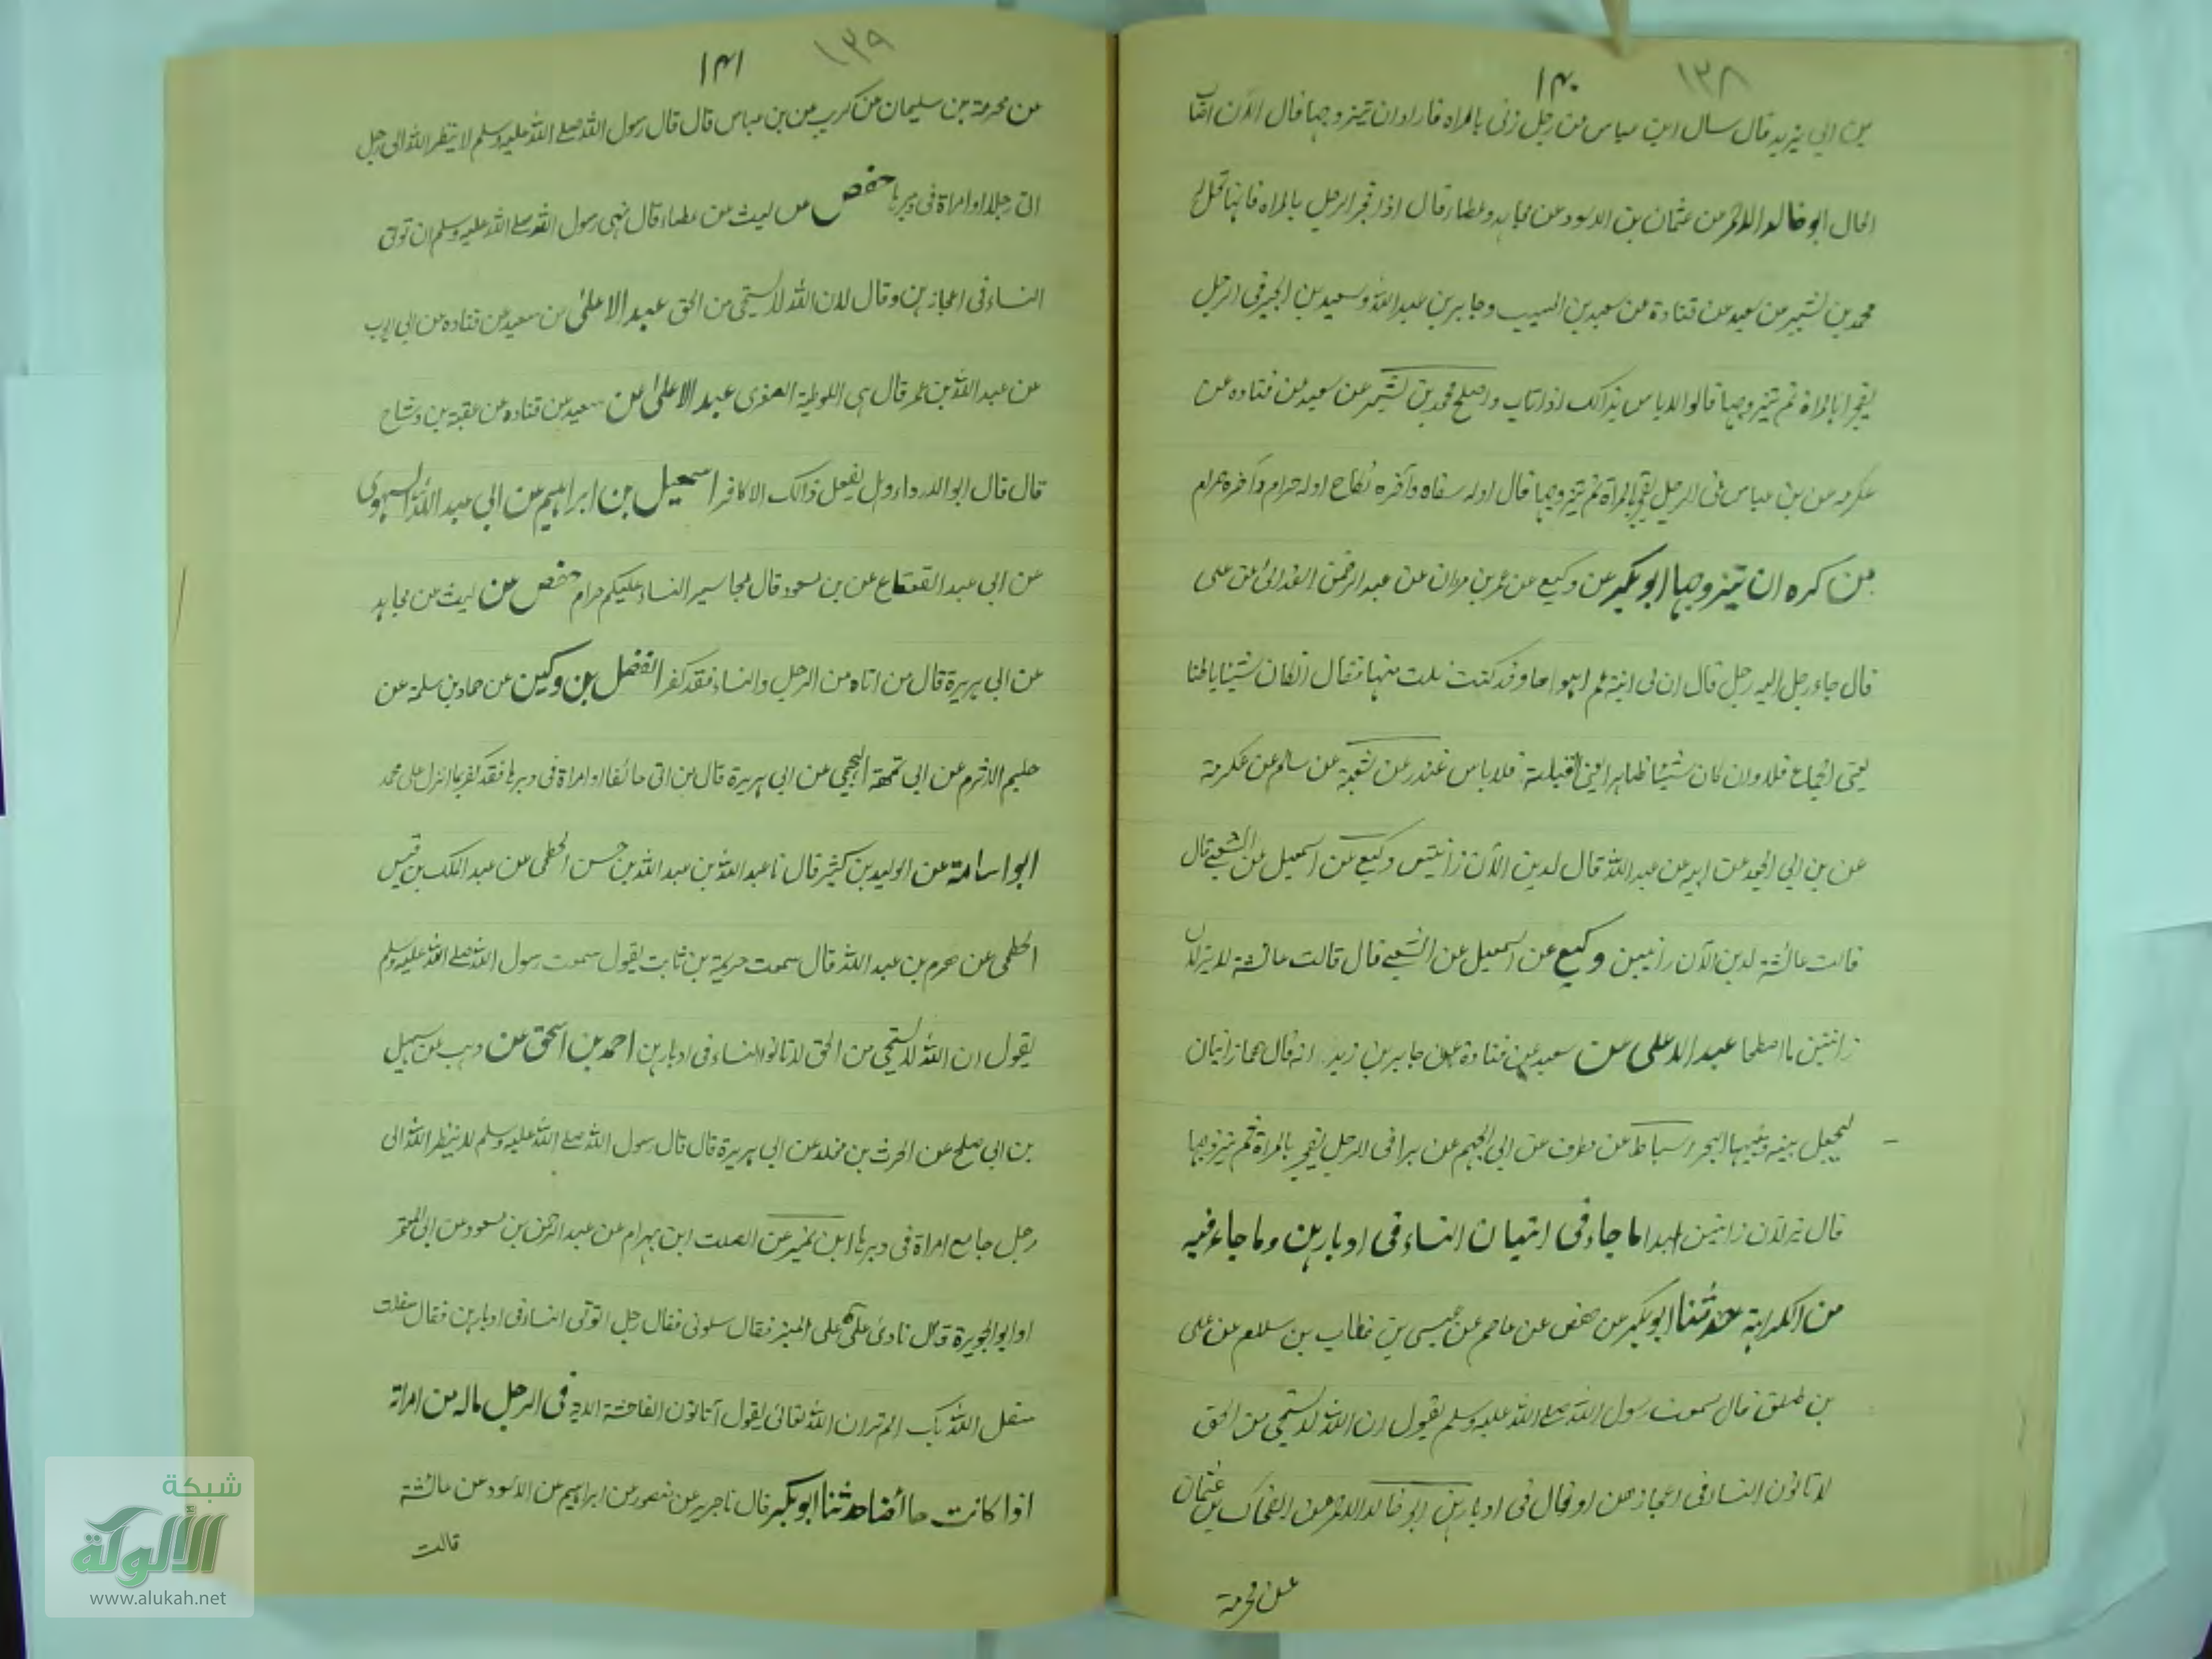 ١٣٨
١٤٠
بن ابي يزيد قال سال ابن عباس من رجل زنى بالمراه فاراد ان يتزوجها قال الآن اصاب
الحال ابو خالد الاحمر عن عثمان بن الاسود عن مجاهد وعطاء قال اذا فجر الرجل بالمراه فانها تحل له
محمد بن بشير عن سعيد عن قتادة عن سعيد بن المسيب وجابر بن عبد الله وسعيد بن الجبير فى الرجل
يفجر بالمراة ثم يتزوجها قالوا لا باس بذالك اذا تاب واصلح محمد بن بشير عن سعيد عن قتاده عن
عكرمه عن بن عباس فى الرجل يفجر بالمراة ثم يتزوجها قال اوله سفاه وآخره نكاح اوله حرام وآخره حرام
من كره ان يتزوجها ابو بكير عن وكيع عن عمر بن مروان عن عبد الرحمن الصدائى عن على
قال جاء رجل اليه رجل قال ان لى ابنة عم اهواها وقد كنت نلت منها فقال ان كان شيئا باطنا
يعنى الجماع فلا وان كان شيئا ظاهرا يعنى القبلة فلا باس غندر عن شعبة عن سالم عن عكرمة
عن بن ابى الجعد عن ابيه عن عبد الله قال لا يزالان زانيتين وكيع عن اسمعيل عن الشعبى قال
قالت عائشة لا يزالان زانيين وكيع عن اسمعيل عن الشعبى قال قالت عائشة لا يزالان
زانيتين ما اصطحا عبد الاعلى عن سعيد عن قتادة عن جابر بن زيد انه قال هما زانيان
ليجعل بينه وبينها البحر اسباط عن مطرف عن ابى الجهم عن برا فى الرجل يفجر بالمراة ثم يتزوجها
قال يزلان زانيين ابدا ما جاء فى اتيان النساء فى ادبارهن وما جاء فيه
من الكراهة حدثنا ابو بكير عن حفص عن عاصم عن عيسى بن خطاب بن سلام عن على
بن طلق قال سمعت رسول الله صلى الله عليه وسلم يقول ان الله لا يستحى من الحق
لا تاتون النساء فى اعجازهن او قال فى ادبارهن ابو خالد الاحمر عن الضحاك بن عثمان
عن مخرمة
١٣٩
١٤١
عن مخرمة بن سليمان عن كريب عن بن عباس قال قال رسول الله صلى الله عليه وسلم لا ينظر الله الى رجل
اتى رجلا او امراة فى دبرها حفص عن ليث عن عطاء قال نهى رسول الله صلى الله عليه وسلم ان توتى
النساء فى اعجازهن وقال لان الله لا يستحى من الحق عبد الاعلى عن سعيد عن قتاده عن ابى ايوب
عن عبد الله بن عمر قال هى اللوطية الصغرى عبد الاعلى عن سعيد عن قتاده عن عقبة بن وشاح
قال قال ابو الدرداء وهل يفعل ذالك الا كافر اسمعيل بن ابراهيم عن ابى عبد الله
عن ابى عبد القعقاع عن بن مسعود قال محاسير النساء عليكم حرام حفص عن ليث عن مجاهد
عن ابى هريرة قال من اتاه من الرجل والنساء فقد كفر الفضل بن وكين عن حماد بن سلمة عن
حليم الاثرم عن ابى تمهة الهجيمى عن ابى هريرة قال من اتى حائضا او امراة فى دبرها فقد كفر بما انزل على محمد
ابو اسامة عن الوليد بن كثير قال نا عبد الله بن عبد الله بن حسن الخطمى عن عبد الملك بن قيس
الخطمى عن هرم بن عبد الله قال سمعت خزيمة بن ثابت يقول سمعت رسول الله صلى الله عليه وسلم
يقول ان الله لا يستحى من الحق لا تاتوا النساء فى ادبارهن احمد بن اسحق عن وهب عن سهيل
بن ابى صلح عن الحرث بن مخلد عن ابى هريرة قال قال رسول الله صلى الله عليه وسلم لا ينظر الله الى
رجل جامع امراة فى دبرها ابن نمير عن الصلت ابن بهرام عن عبد الرحمن بن مسعود عن ابى المعتمر
او ابو الجويرة قال نادى على على المنبر فقال سلونى فقال رجل اتوتى النساء فى ادبارهن فقال سفلت
سفل الله بك الم تر ان الله تعالى يقول أتاتون الفاحشة الاية فى الرجل ماله من امراته
اذا كانت حائضا حدثنا ابو بكير قال نا جرير عن منصور عن ابراهيم عن الاسود عن عائشة
قالت
شبكة
الألوكة
www.alukah.net